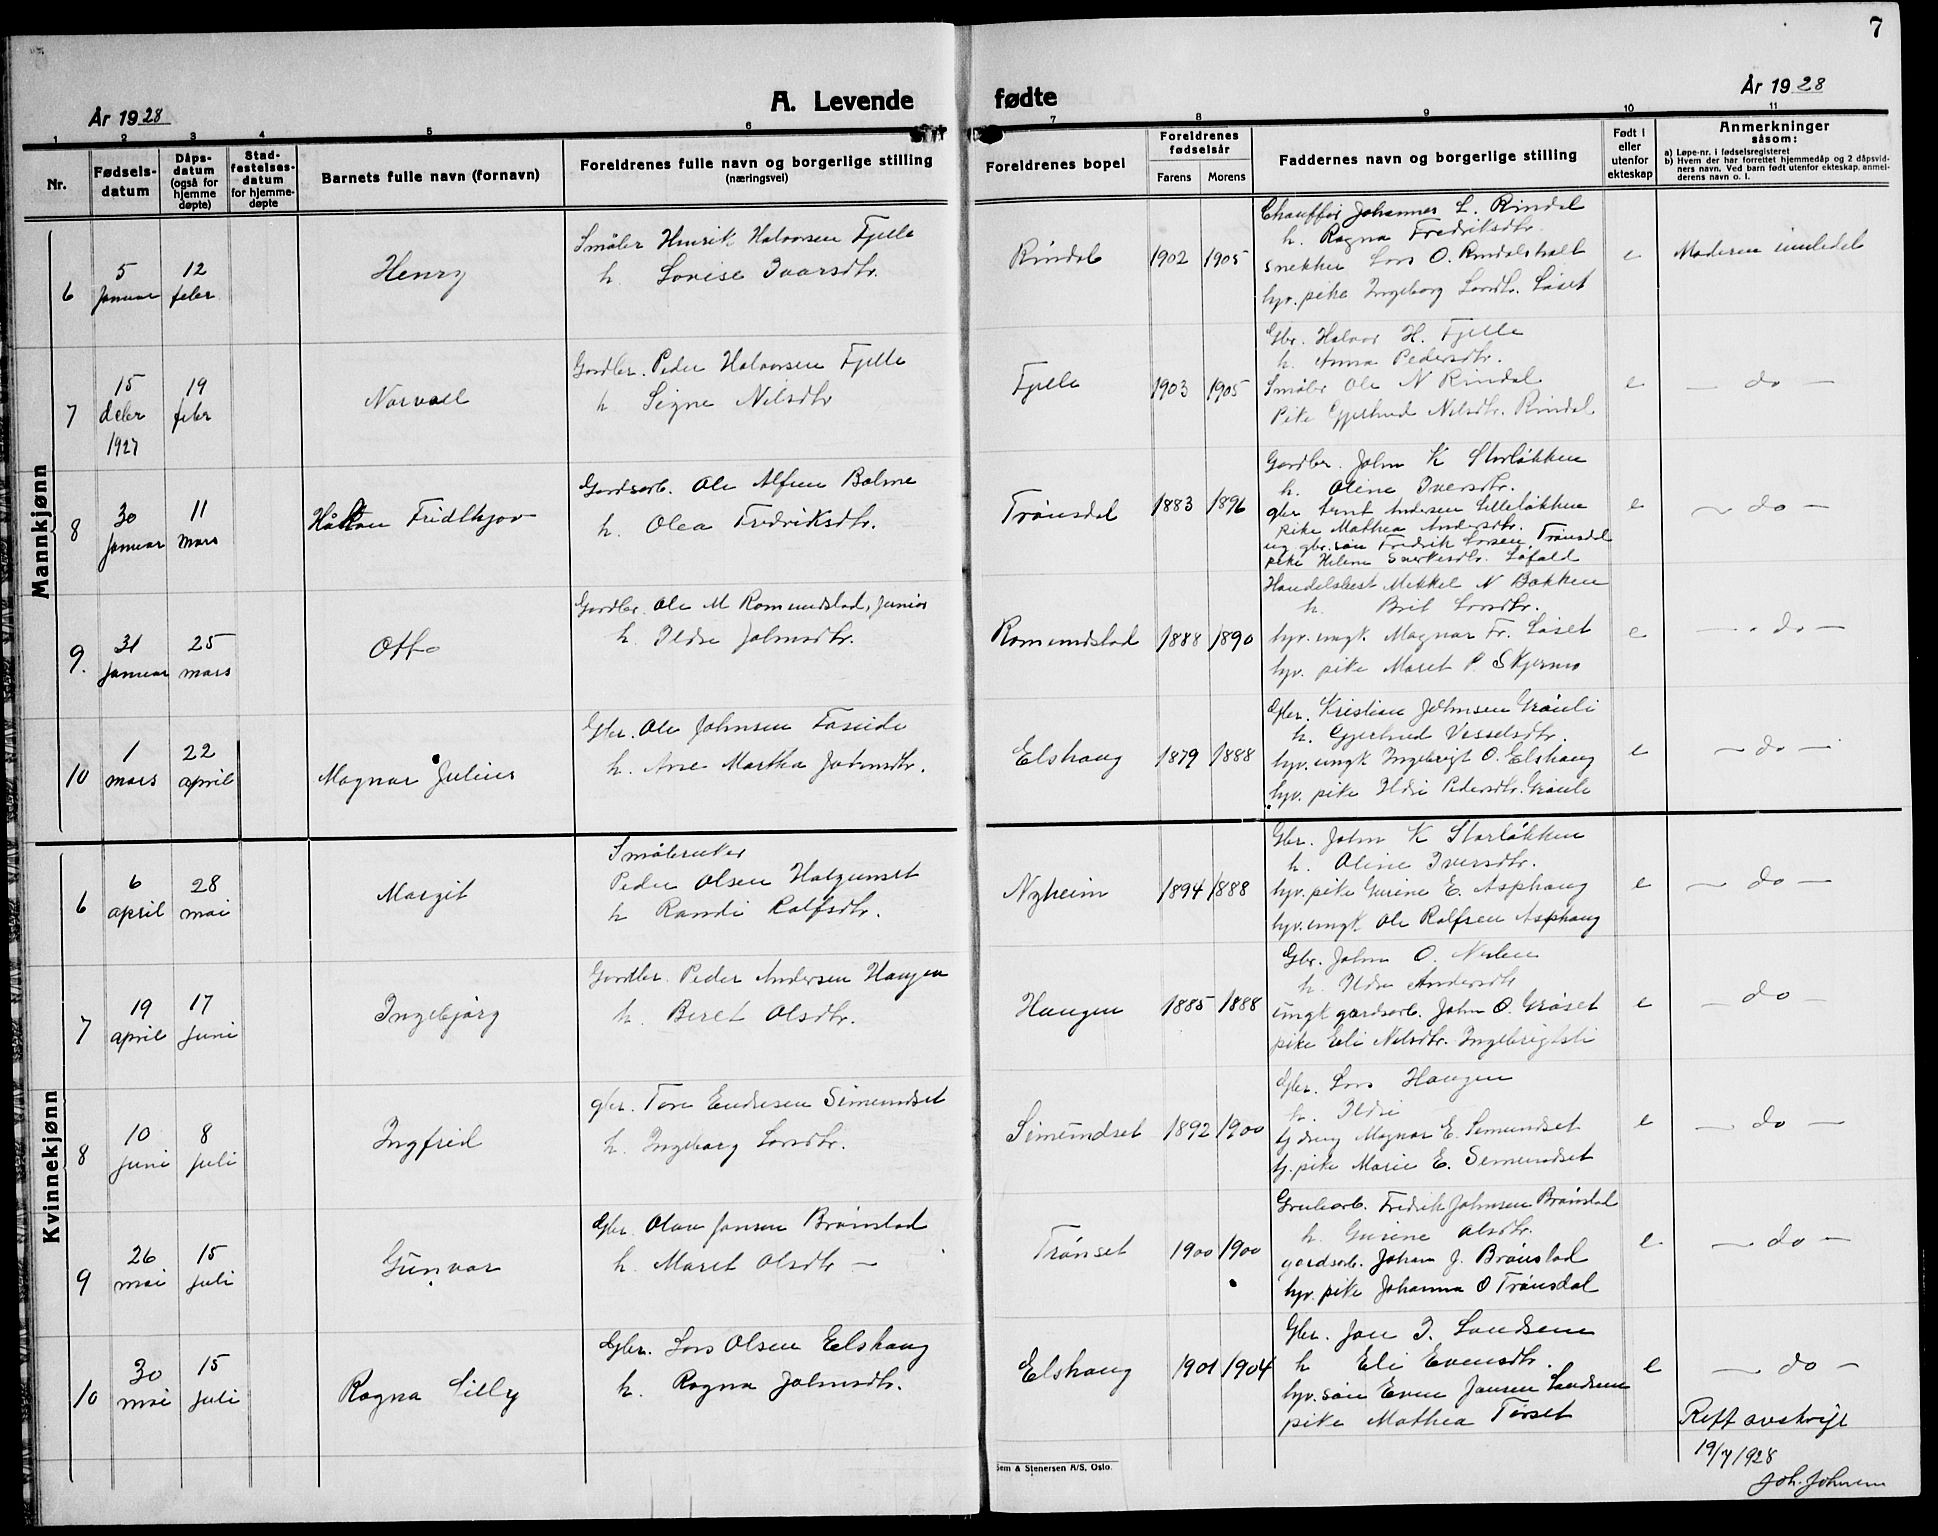 7
År 1928
A. Levende fødte
År 1928
1 2 3 4 5 6 7 8 9 10 11
Nr.
Fødsels-datum
Dåps-datum (også for hjemme døpte)
Stad-festelses-datum for hjemme-døpte
Barnets fulle navn (fornavn)
Foreldrenes fulle navn og borgerlige stilling (næringsvei)
Foreldrenes bopel
Foreldrenes fødselsår
Farens Morens
Faddernes navn og borgerlige stilling
Født i eller utenfor ekteskap
Anmerkninger såsom:
a) Løpe-nr. i fødselsregisteret
b) Hvem der har forrettet hjemmedåp og 2 dåpsvid-
ners navn. Ved barn født utenfor ekteskap, anmel-
derens navn o. l.
Mannkjønn
6
5 januar
12 feber
Henry
Småbr Henrik Halvorsen Fjelle
h. Lovise Ivarsdtr.
Rindal
1902 1905
Chauffør Johannes L. Rindal
h. Ragna Fredriksdtr.
snekker Lars O. Rindalshalt
hv. pike Ingeborg Larsdtr. Løset
e
Moderen innledet
7
15 deber 1927
19 feber
Norvall
Gardbr. Peder Halvorsen Fjelle
h. Signe Nilsdtr
Fjelle
1903 1905
Gbr. Halvor H. Fjelle
h. Anna Pedersdtr.
Småbr Ole N Rindal
Pike Gjertrud Nilsdtr. Rindal
e
— do —
8
30 januar
11 mars
Håkon Fridthjov
Gardsarb. Ole Alfsen Bolme
h. Olea Fredriksdtr.
Trønsdal
1883 1896
Gardbr. John K Storløkken
h. Oline Iversdtr.
gbr Arnt Andersen Lilleløkken
pike Mathea Andersdtr.
ug gbr. søn Fredrik Larsen Trønsdal
pike Helene Sverkesdtr. Løfald
e
— do —
9.
31 januar
25 mars
Otto
Gardbr. Ole M Romundstad, junior
h. Ildri Johnsdtr.
Romundstad
1888 1890
Handelsbest Mikkel N Bakken
h. Brit Larsdtr.
hv. ungk. Magnar Fr. Løset
hv. pike Maret P. Skjermo
e
— do —
10
1 mars
22 april
Magnar Julius
Gbr. Ole Johnsen Faseide
h. Ane Martha Johnsdtr.
Elshaug
1879 1888
Gbr. Kristian Johnsen Grønli
h. Gjertrud Vesselsdtr.
hv. ungk Ingebrigt O. Elshaug
hv. pike Ildri Pedersdtr. Grønli
e
— do —
Kvinnekjønn
6
6 april
28 mai
Margit
Småbruker
Peder Olsen Halgunset
h Randi Rolfsdtr.
Nyheim
1894 1888
Gbr. John K Storløkken
h. Oline Iversdtr.
hv. pike Gurine E. Asphaug
hv. ungk Ole Rolfsen Asphaug
e
— do —
7
19 april
17 juni
Ingebjørg
Gardbr. Peder Andersen Haugen
h. Beret Olsdtr.
Haugen
1885 1888
Gbr. John O. Nerlien
h. Ildri Andersdtr
ungk gardsarb. John O. Grøset
pike Eli Nilsdtr. Ingebrigtsli
e
— do —
8
10 juni
8 juli
Ingfrid
gbr. Tore Endresen Simundset
h. Ingeborg Larsdtr.
Simundset
1892 1900
Gbr. Lars Haugen
h. Ildri
hj dreng Magnar E. Semundset
hj. pike Marie E. Semundset
e
— do —
9
26 mai
15 juli
Gunvor
Gbr. Olav Jonsen Brønstad
h. Maret Olsdtr —
Trønset
1900 1900
Grubearb. Fredrik Johnsen Brønstad
h. Gurine Olsdtr.
gardsarb. Johan J. Brønstad
hv. pike Johanna O Trønsdal
e
— do —
10
30 mai
15 juli
Ragna Lilly
Gbr. Lars Olsen Elshaug
h. Ragna Johnsdtr.
Elshaug
1901 1904
Gbr. Jon I. Landsem
h Eli Evensdtr.
hv. søn Even Jonsen Landsem
pike Mathea Tørset
e
— do —
Rett avskrift
19/7 1928
Joh. Johnsen
Sem & Stenersen A/S, Oslo.